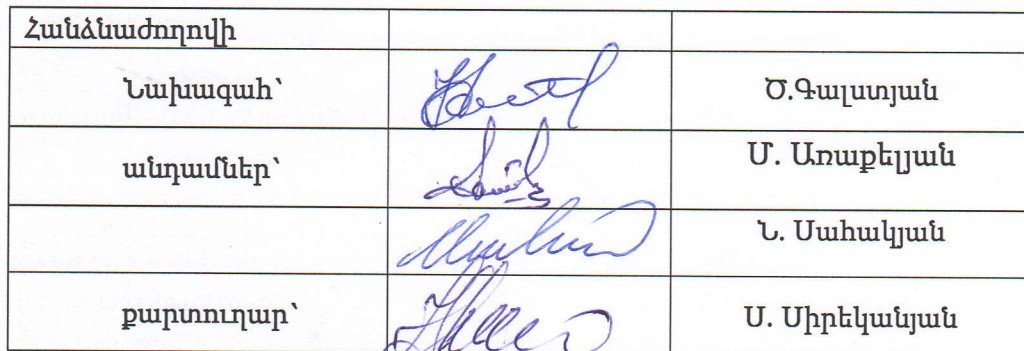 Հանձնաժողովի
Նախագահ՝ Ծ.Գալստյան
անդամներ՝ Մ. Առաքելյան
Ն. Սահակյան
քարտուղար՝ Ս. Սիրեկանյան